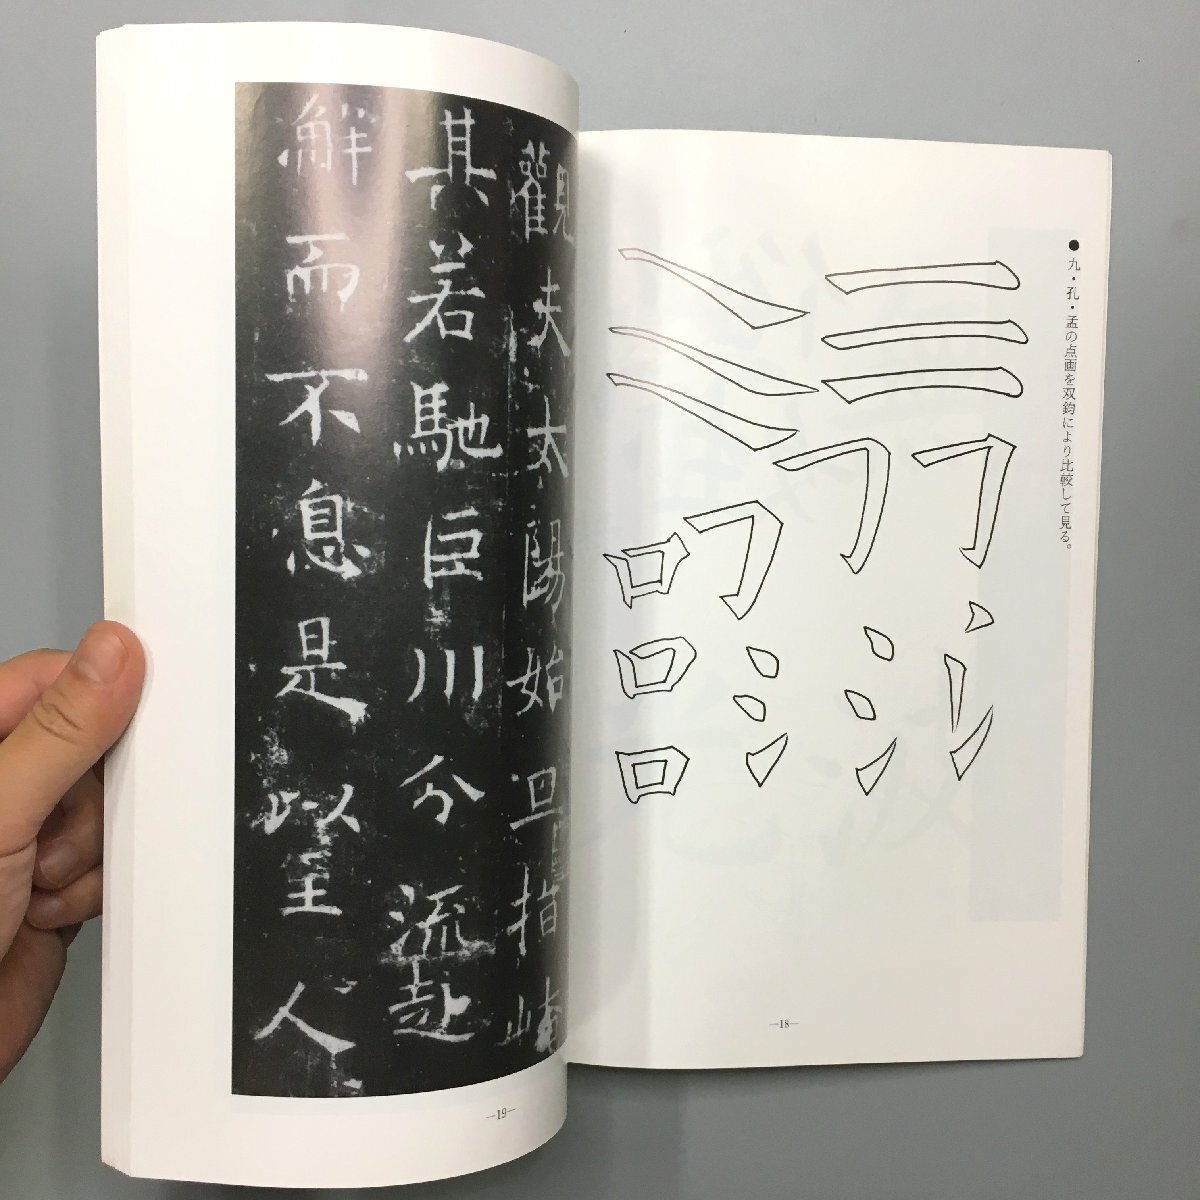 ●九・孔・孟の点画を双鈎により比較して見る。
—18—
觀夫太陽始旦指崦
其若馳臣川分流赴
解而不息是以至人
—19—